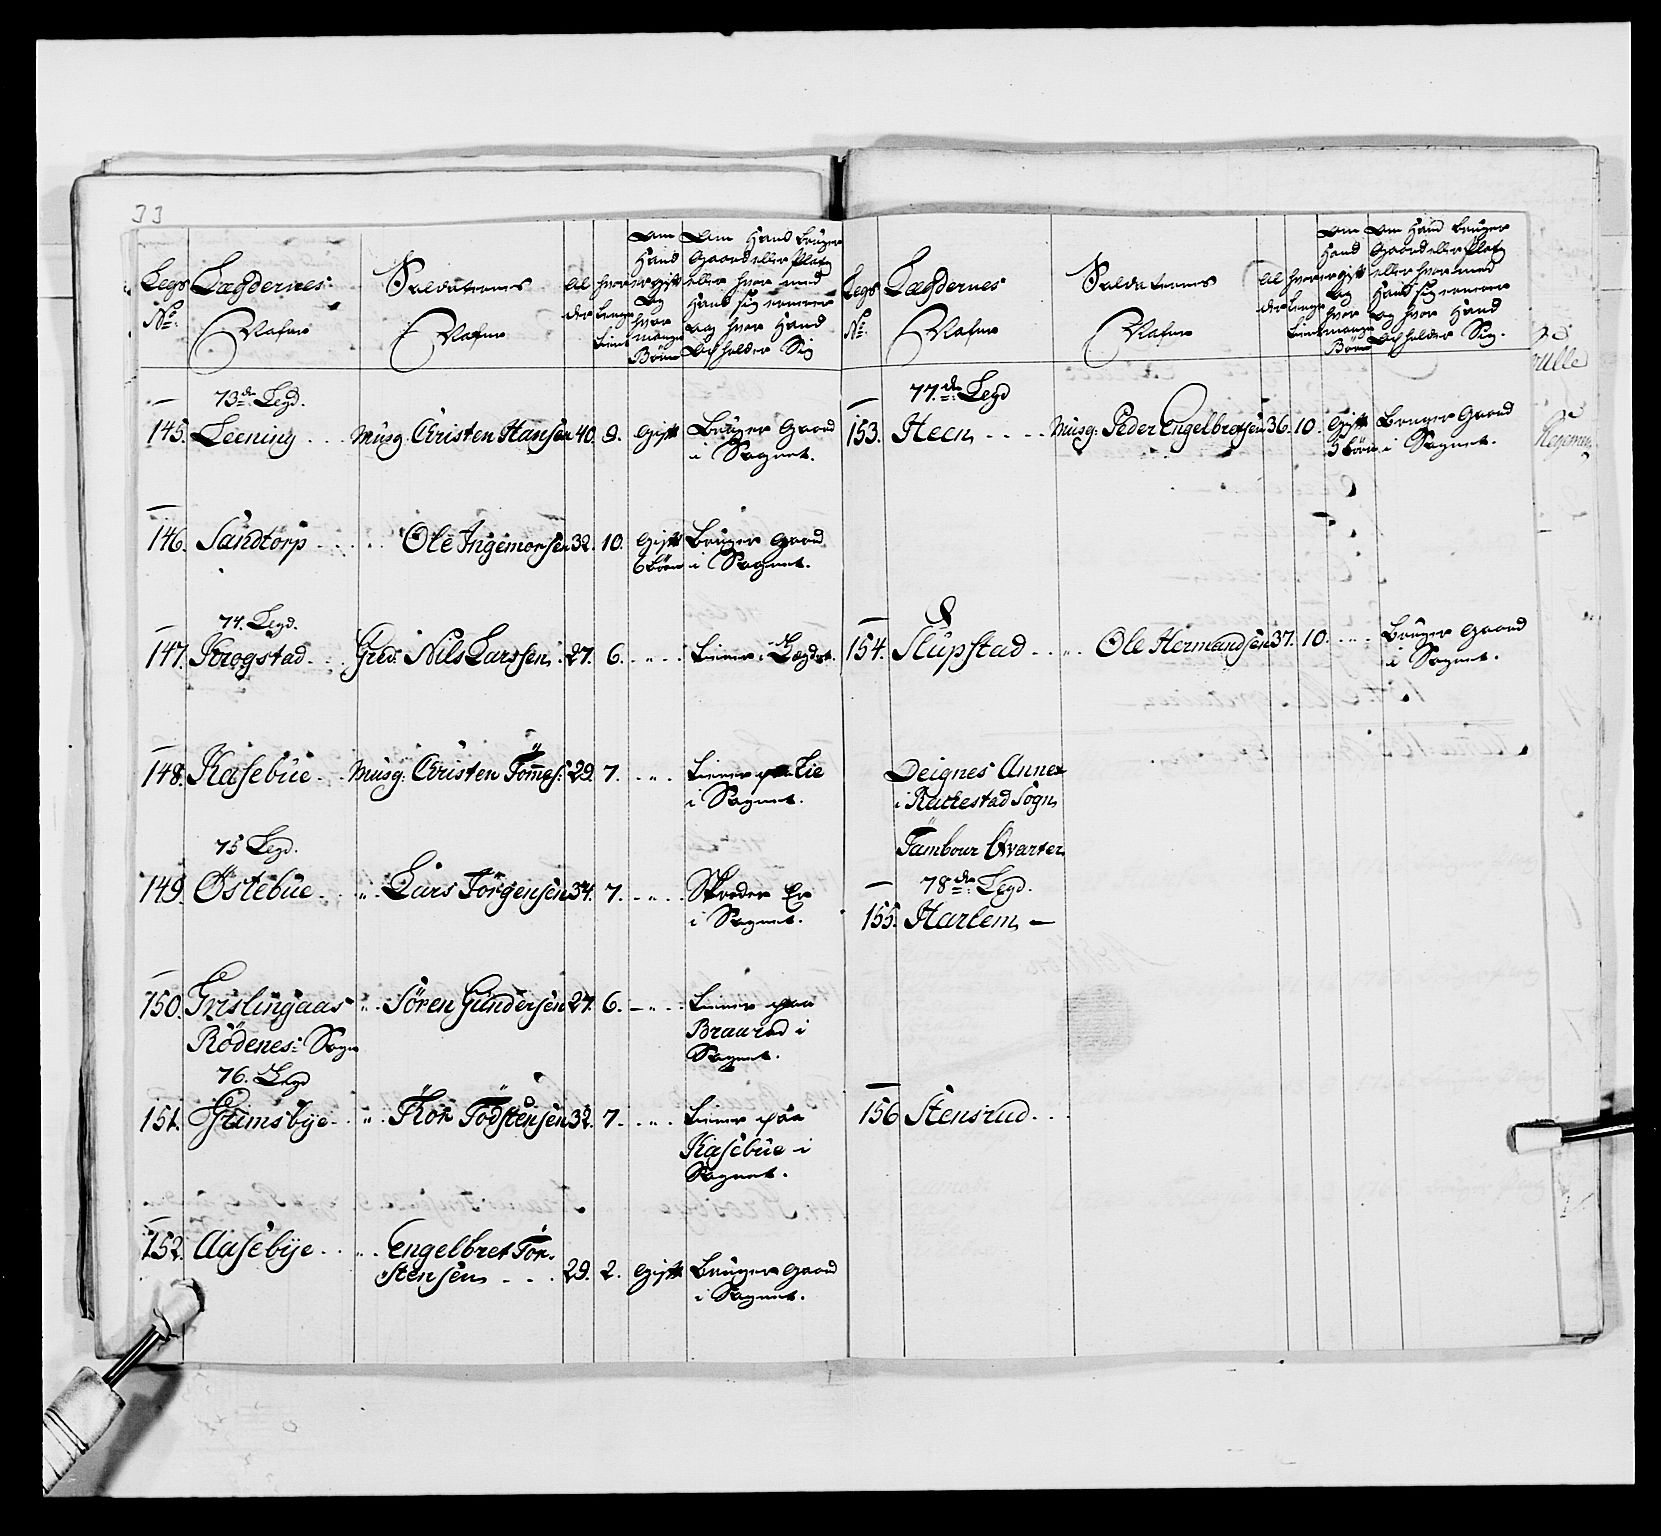 33
Legs
No:
Lægdernes
Nafne
Soldaternes
Nafne
Al
der
hvor
lenge
tient
Om
Hand
er gift
og
hvor
mange
Børn
Om Hand bruger
Gaard eller Platz
eller hvor med
Hand sig ernerer
og hvor Hand
Opholder Sig
73de Legd.
145. Leening . . . Musq: Christen Hansen 40. 9. Gift Bruger Gaard
i Sognet.
146. Sandtorp . . . . Ole Ingemorsen 32. 10. Gift Bruger Gaard
6 børn i Sognet.
74. Legd.
147. Krogstad . . Gred: Nils Larssen . 27. 6. " . . Tiener i Lægdet.
148. Kasebüe . . Musq: Christen Tömmes: 29. 7. " . . Tiener paa Lie
i Sognet.
75 Legd.
149. Östebüe . . " . Lars Törgensen 34. 7. . " . . Skreder Er
i Sognet.
150. Grislingaas " . Sören Gundersen 27. 6. " . . Tiener paa
Braarud i
Rödenes: Sogn
Sognet.
76. Legd
151. Grimsbye . . " . Thor Todstensen 32. 7. . " . . Tiener paa
Kasebüe i
Sognet.
152. Aasebye . . " . Engelbret Tor-
stensen . . . 29. 2. Gift Bruger Gaard
i Sognet.
Legs
No:
Lægdernes
Nafne
Soldaternes
Nafne
Al
der
hvor
lenge
tient
Om
Hand
er gift
og
hvor
mange
Børn
Om Hand bruger
Gaard eller Platz
eller hvor med
Hand sig ernerer
og hvor Hand
Opholder Sig.
77.de Legd
153. Heen . . . . Musq: Peder Engelbretsen 36. 10. Gift Bruger Gaard
5 børn i Sognet.
154. Slupstad . . " . Ole Hermandsen 37. 10. " . . Bruger Gaard
i Sognet.
Deignes Annex
i Rackestad Sogn
Tambour Qvarter
78de Legd.
155. Harlem –
156 Stensrud . . .